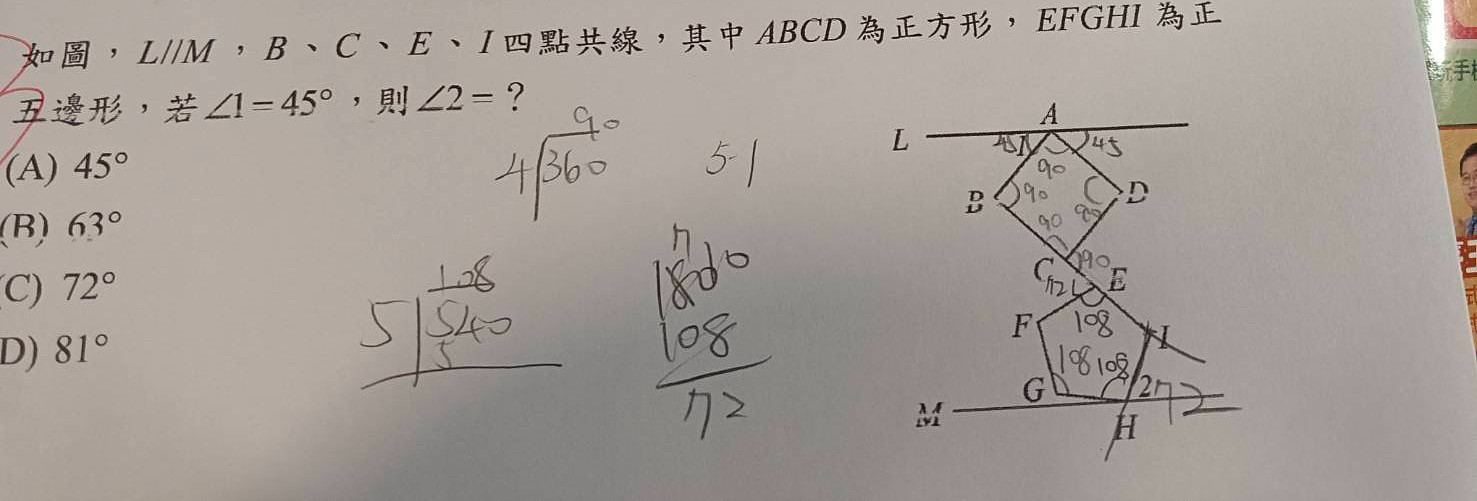 如圖，L//M，B、C、E、I四點共線，其中ABCD為正方形，EFGHI為正
五邊形，若∠1=45°，則∠2=？
(A) 45°
(B) 63°
(C) 72°
D) 81°
90
4 360
5-1
108
5 540
5
180
108
72
A
L
45
1
45
90
B
90
D
90
90
C
90
72
E
F
108
I
108
108
G
2
72
M
H
玩手